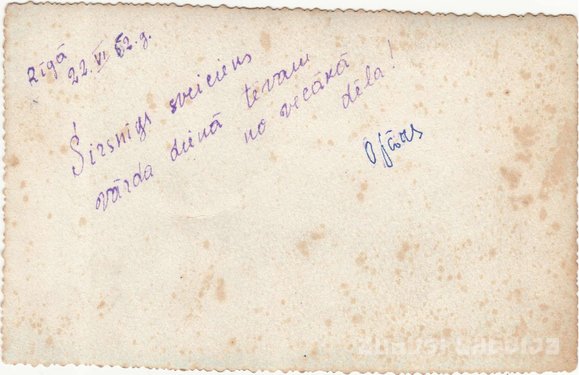 Rīgā
22. VI 52. g.
Sirsnīgs sveiciens
vārda dienā tēvam
no vecākā
dēla!
Ojārs